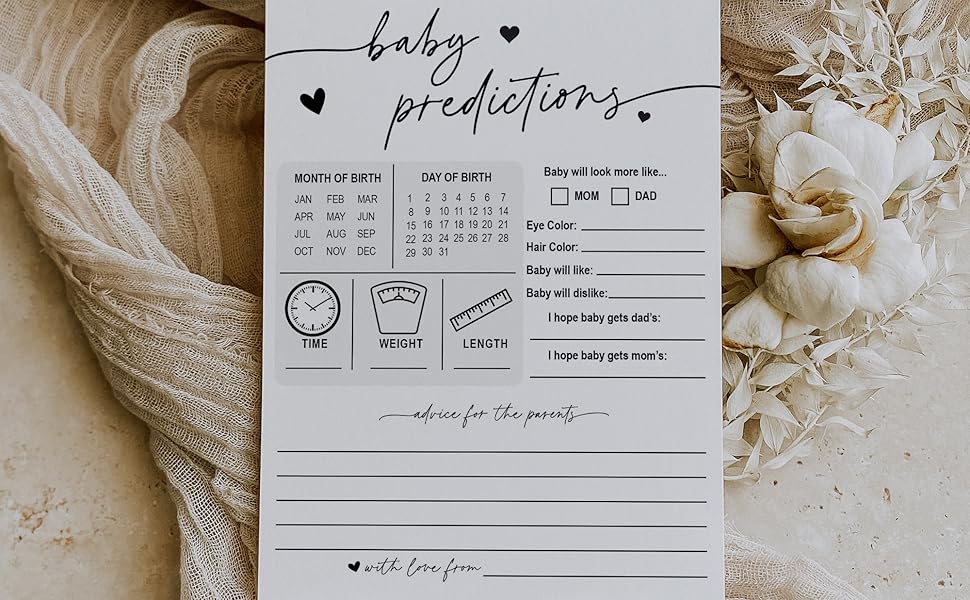 baby
predictions
MONTH OF BIRTH
JAN FEB MAR
APR MAY JUN
JUL AUG SEP
OCT NOV DEC
DAY OF BIRTH
1 2 3 4 5 6 7
8 9 10 11 12 13 14
15 16 17 18 19 20 21
22 23 24 25 26 27 28
29 30 31
TIME
WEIGHT
LENGTH
Baby will look more like...
MOM DAD
Eye Color:
Hair Color:
Baby will like:
Baby will dislike:
I hope baby gets dad's:
I hope baby gets mom's:
advice for the parents
with love from